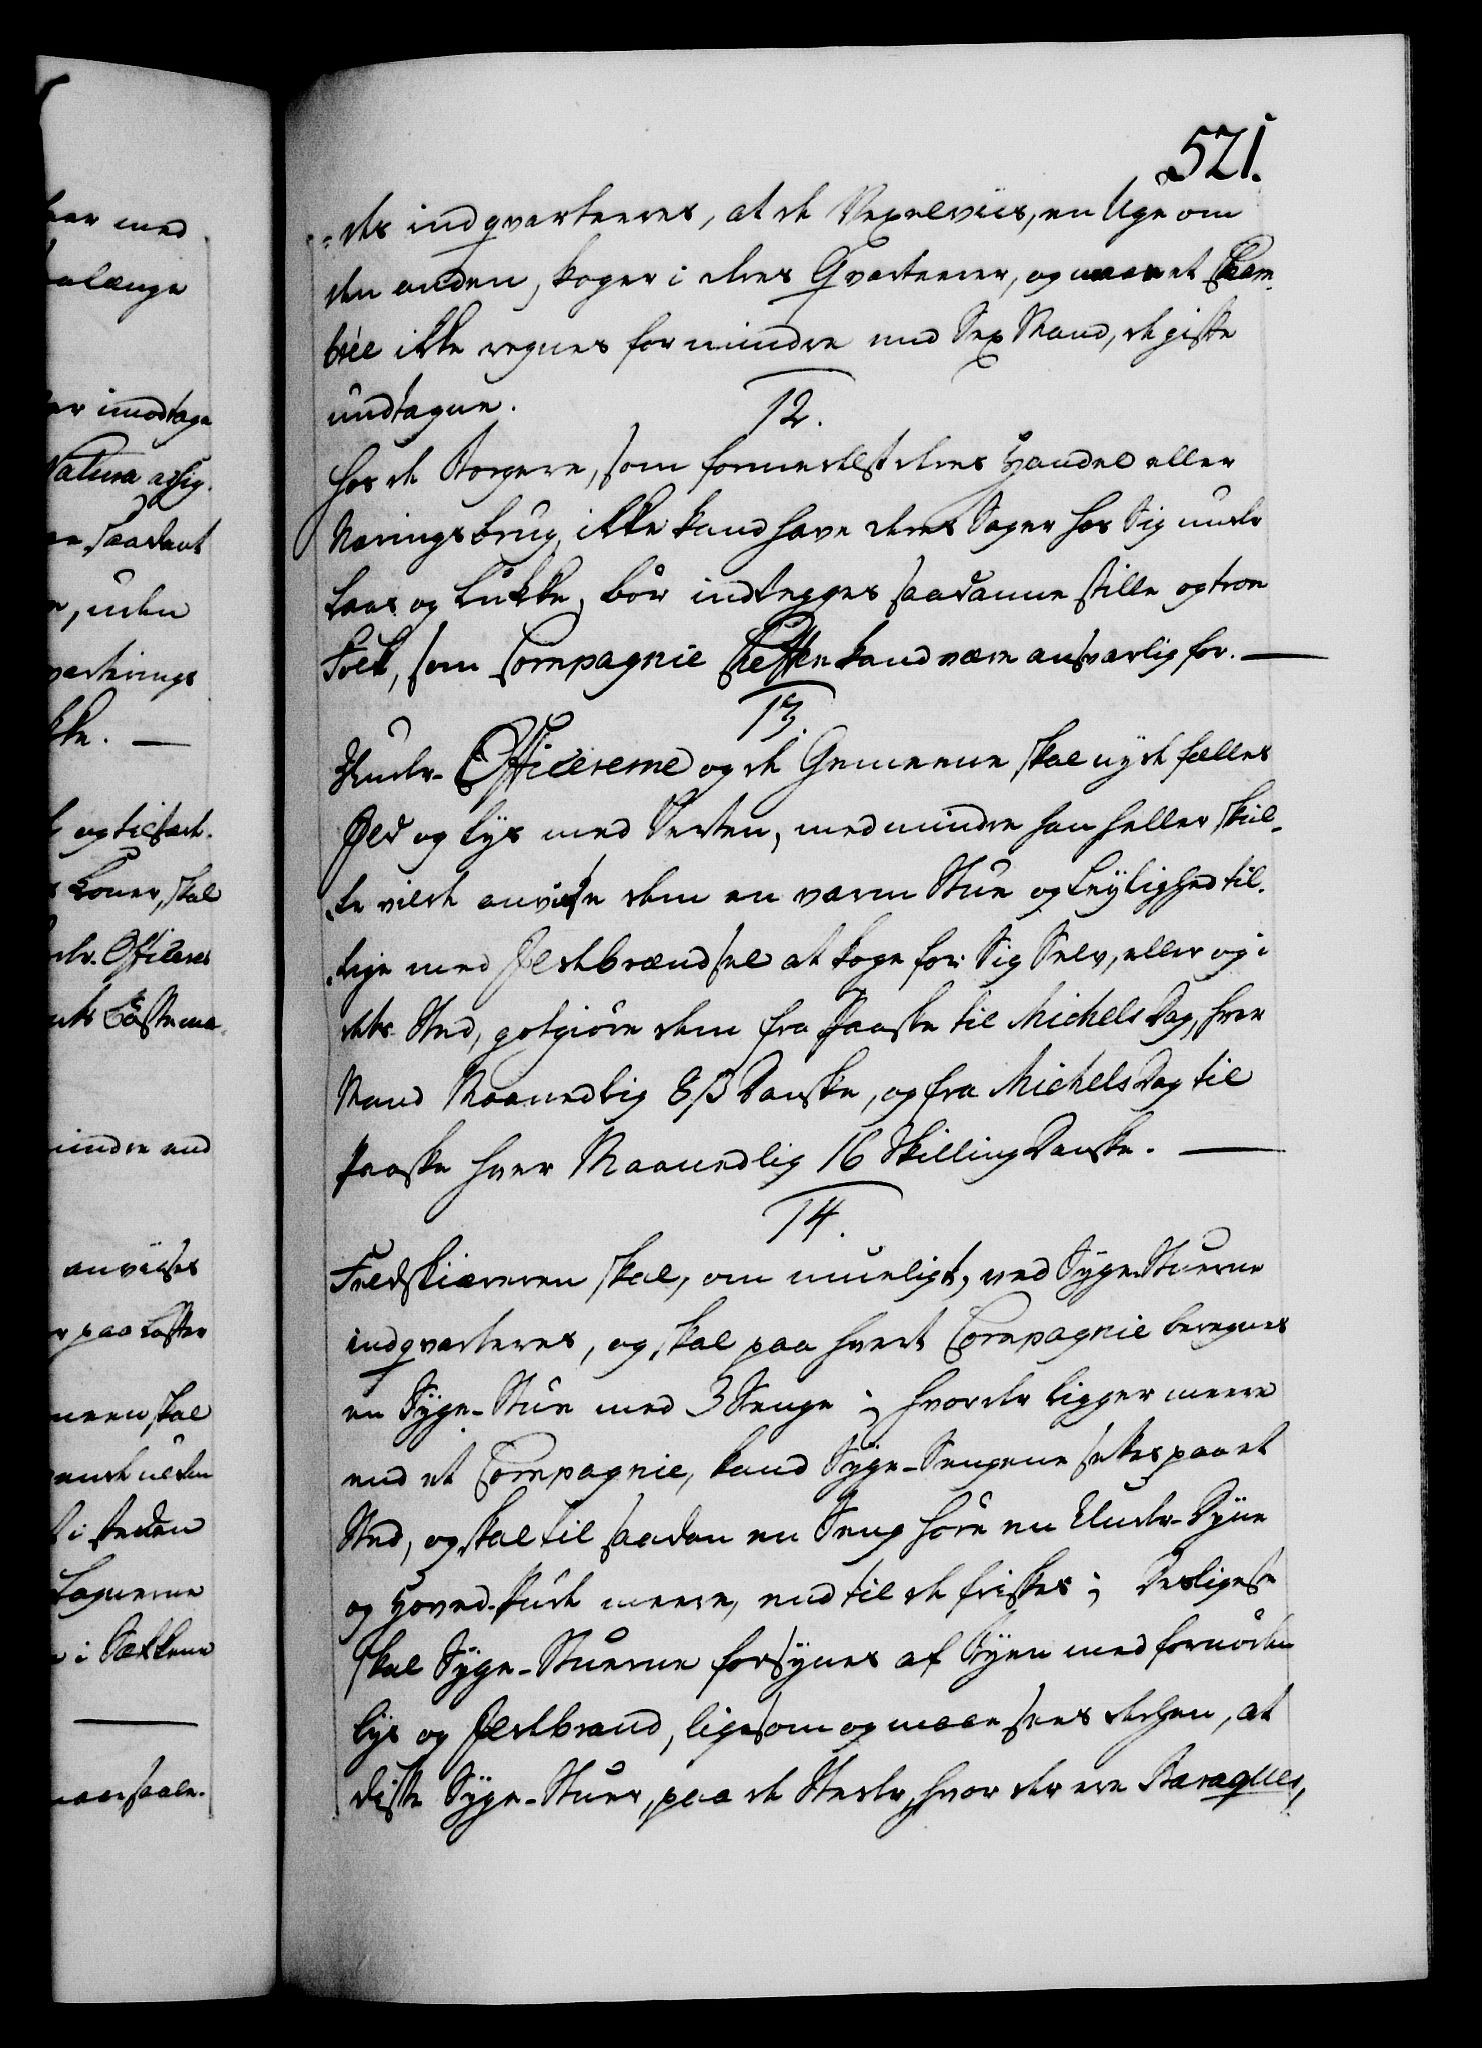 521.
-des indqvarteeres, at de Vexelviis, en Uge om
den anden, koger i deres Qvarteerer, og maae et Cham-
brée ikke regnes for mindre end Sex Mand, de gifte
undtagne.
12.
Hos de Borgere, som formedelst deres Handel eller
Næringsbrug, ikke kand have deres Sager hos Sig under
Laas og Lukke, bør indlegges saadanne stille og troe
Folk, som Compagnie Cheffen kand være ansvarlig for. —
13.
Under-Officererne og de Gemeene skal nyde fælles
Ild og Lys med Verten, med mindre han heller skul-
-le vilde anvise dem en varm Stue og Leylighed til-
-lige med Ildebrændsel at koge for Sig Selv, eller og i
dets Sted, godtgiøre dem fra Paaske til Michels Dag, hver
Mand Maanedlig 8 ß Danske, og fra Michels Dag til
Paaske hver Maanedlig 16 Skilling Danske. —
14.
Feldskiæreren skal, om mueligt, ved Syge Stuerne
indqvarteres, og skal paa hvert Compagnie beregnes
en Syge-Stue med 3 Senge; hvor der ligger meere
end et Compagnie, kand Syge-Sengene settes paa et
Sted, og skal til saadan en Seng høre en Under-Dyne
og Hoved-Pude meere, end til de friskes; Desligeste
skal Syge-Stuerne forsynes af Byen med fornøden
Lys og Ildebrand, ligesom og maae sees derhen, at
disse Syge-Stuer, paa de Steder, hvor der ere Baraques,